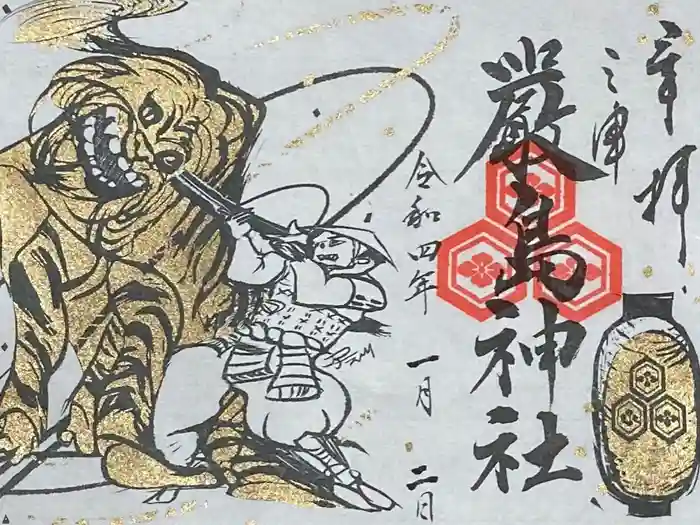 奉拝
之津
嚴島神社
令和四年 一月 二日